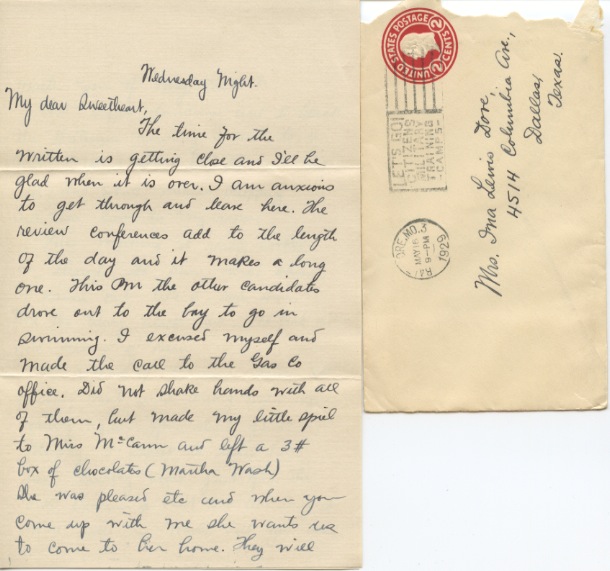 Wednesday Night.
My dear Sweetheart,
The time for the
written is getting close and I'll be
glad when it is over. I am anxious
to get through and leave here. The
review conferences add to the length
of the day and it makes a long
one. This PM the other candidates
drove out to the bay to go in
swimming. I excused myself and
made the call to the Gas Co
office. Did not shake hands with all
of them, but made my little spiel
to Miss McCann and left a 3#
box of chocolates (Martha Wash)
She was pleased etc and when you
come up with me she wants us
to come to her home. They will
UNITED STATES POSTAGE
2 CENTS 2
LET'S GO!
CITIZENS
MILITARY
TRAINING
CAMPS-
ORE, MD. 3
MAY 15
9-PM
1929
Mrs. Ina Lewis Dore,
4514 Columbia Ave.,
Dallas,
Texas.